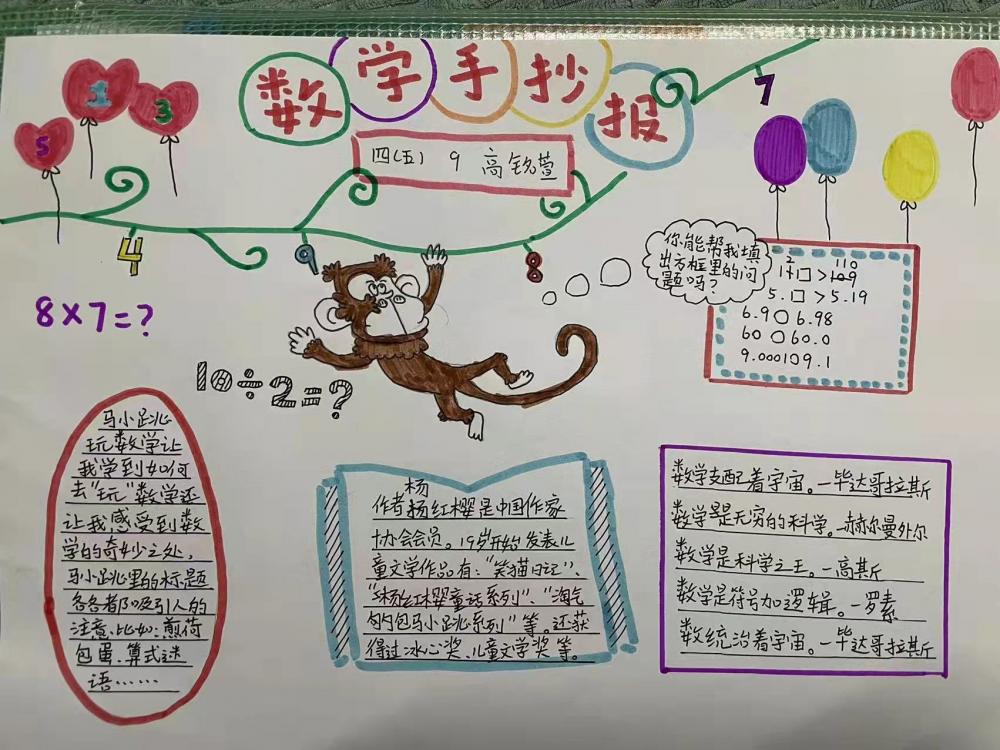 数学手抄报
四(五) 9 高铭萱
5
1
3
4
9
8
7
8×7=?
10÷2=?
你能帮我填
出方框里的问
题吗?
2 110
1+1□>109
5.□>5.19
6.9○6.98
60○60.0
9.0001○9.1
马小跳
玩数学让
我学到如何
去“玩”数学还
让我感受到数
学的奇妙之处,
马小跳里的标题
各各都吸引人的
注意.比如:煎荷
包蛋.算式谜
语……
杨
作者杨红樱是中国作家
协会会员。19岁开始发表儿
童文学作品有:“笑猫日记”、
“杨红樱童话系列”、“淘气
包马小跳系列”等。还获
得过冰心奖、儿童文学奖等。
数学支配着宇宙。—毕达哥拉斯
数学是无穷的科学。—赫尔曼外尔
数学是科学之王。—高斯
数学是符号加逻辑。—罗素
数统治着宇宙。—毕达哥拉斯